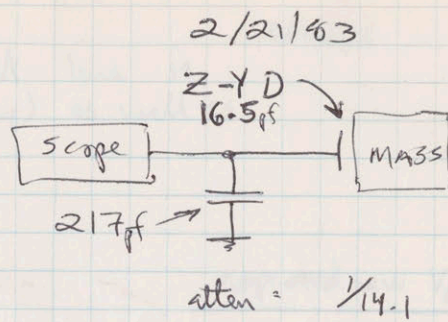 2/21/83
Z-Y D
16.5pf
scope
MASS
217pf
atten = 1/14.1